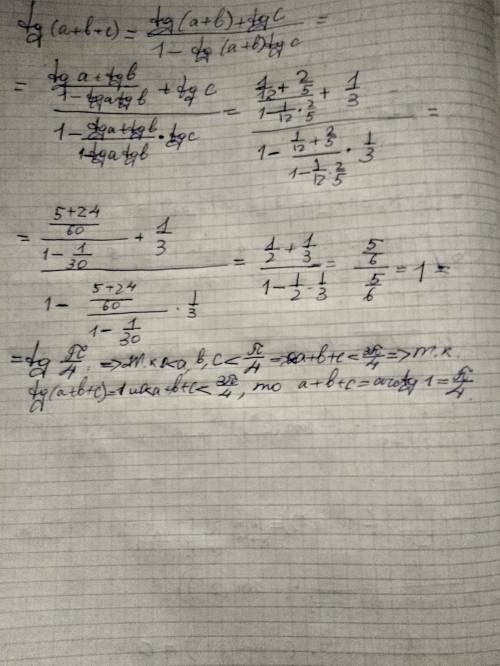 tg(a+b+c) = (tg(a+b)+tg c)/(1-tg(a+b)tg c) =
= ((tg a+tg b)/(1-tg a tg b) + tg c)/(1-(tg a+tg b)/(1-tg a tg b)·tg c) = ((1/12+2/5)/(1-1/12·2/5) + 1/3)/(1-(1/12+2/5)/(1-1/12·2/5)·1/3) =
= (((5+24)/60)/(1-1/30) + 1/3)/(1-((5+24)/60)/(1-1/30)·1/3) = (1/2+1/3)/(1-1/2·1/3) = (5/6)/(5/6) = 1 =
= tg π/4. => т.к. a,b,c < π/4 => a+b+c < 3π/4 => т.к.
tg(a+b+c)=1 и a+b+c < 3π/4, то a+b+c = arctg 1 = π/4.